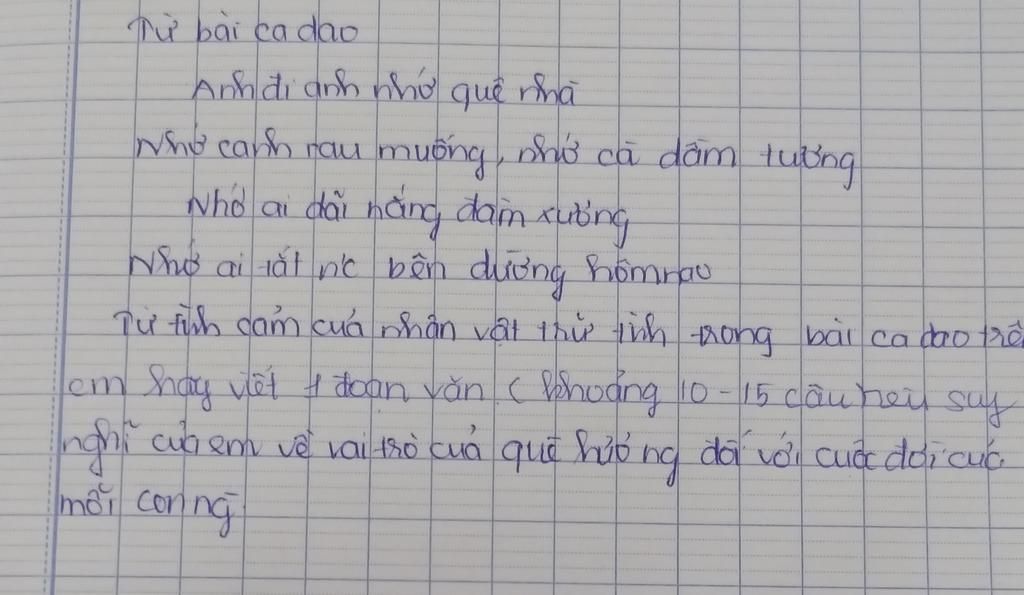 Từ bài ca dao
Anh đi anh nhớ quê nhà
Nhớ canh rau muống, nhớ cà dầm tương
Nhớ ai dãi nắng dầm sương
Nhớ ai tát nc bên đường hôm nao
Từ tình cảm của nhân vật trữ tình trong bài ca dao trê
em hãy viết 1 đoạn văn ( khoảng 10-15 câu nêu suy
nghĩ của em về vai trò của quê hương đối với cuộc đời của
mỗi con ng